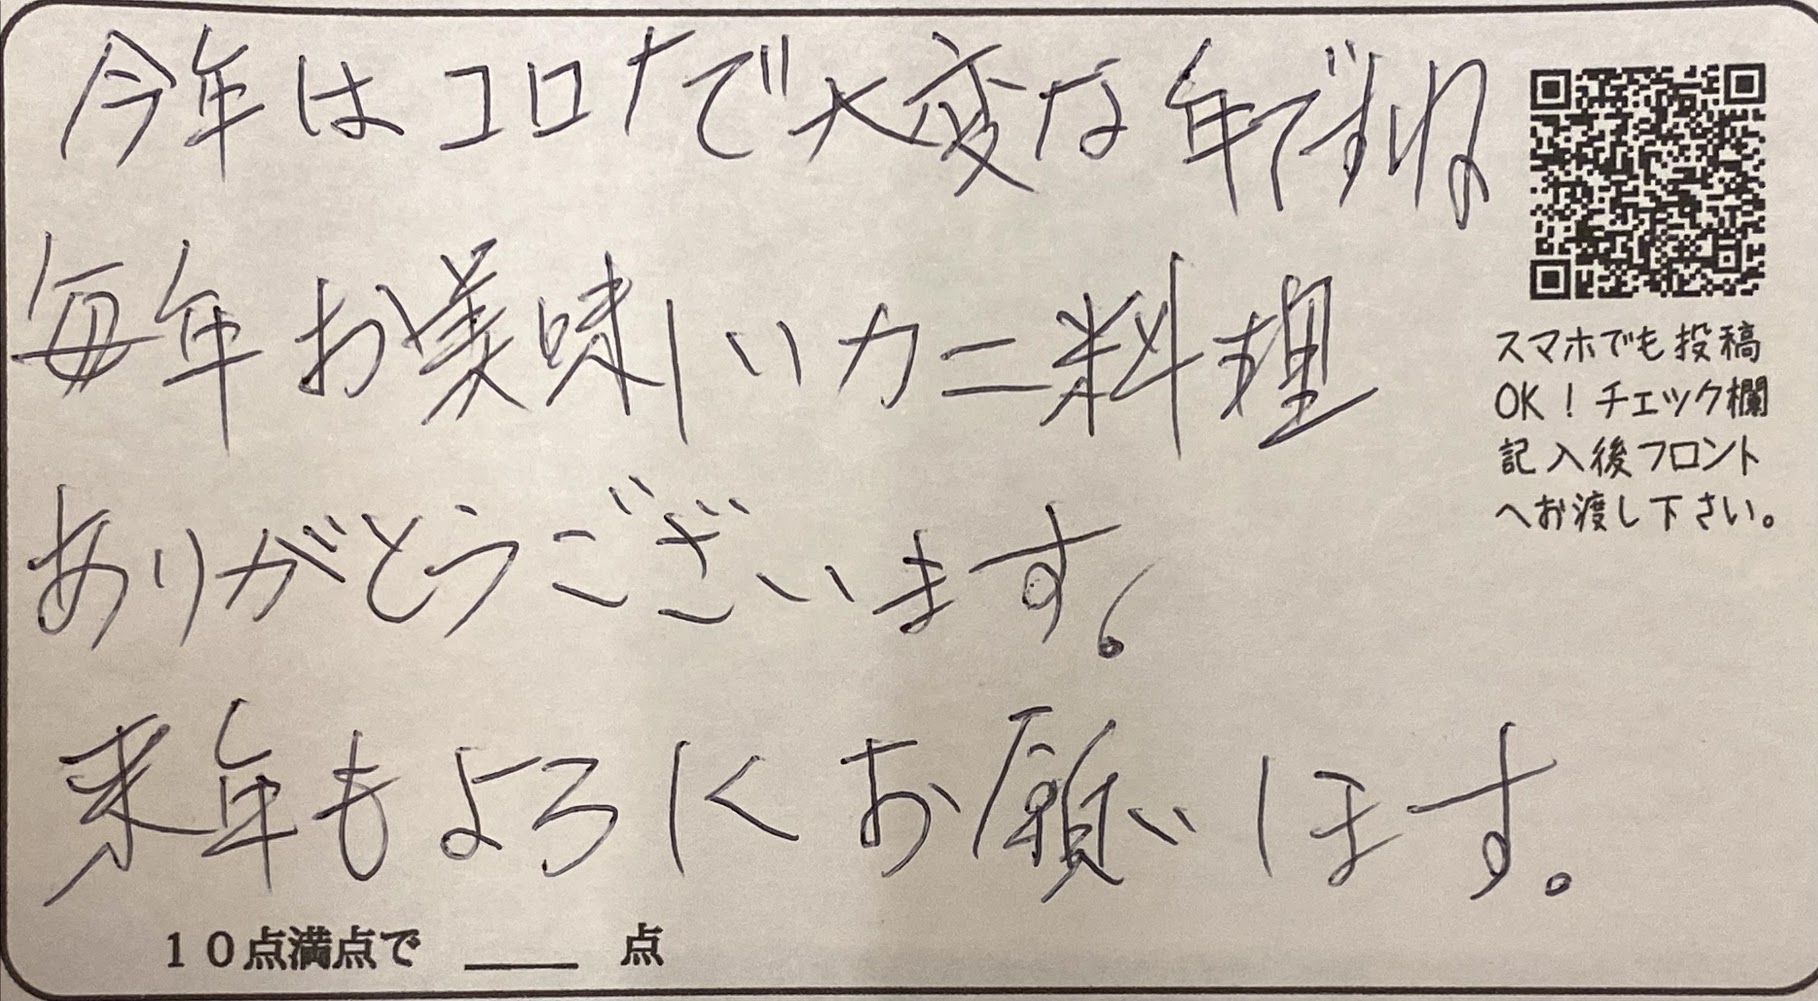 今年はコロナで大変な年ですね
毎年お美味しいカニ料理
ありがとうございます。
来年もよろしくお願いします。
スマホでも投稿
OK！チェック欄
記入後フロント
へお渡し下さい。
10点満点で ＿＿ 点